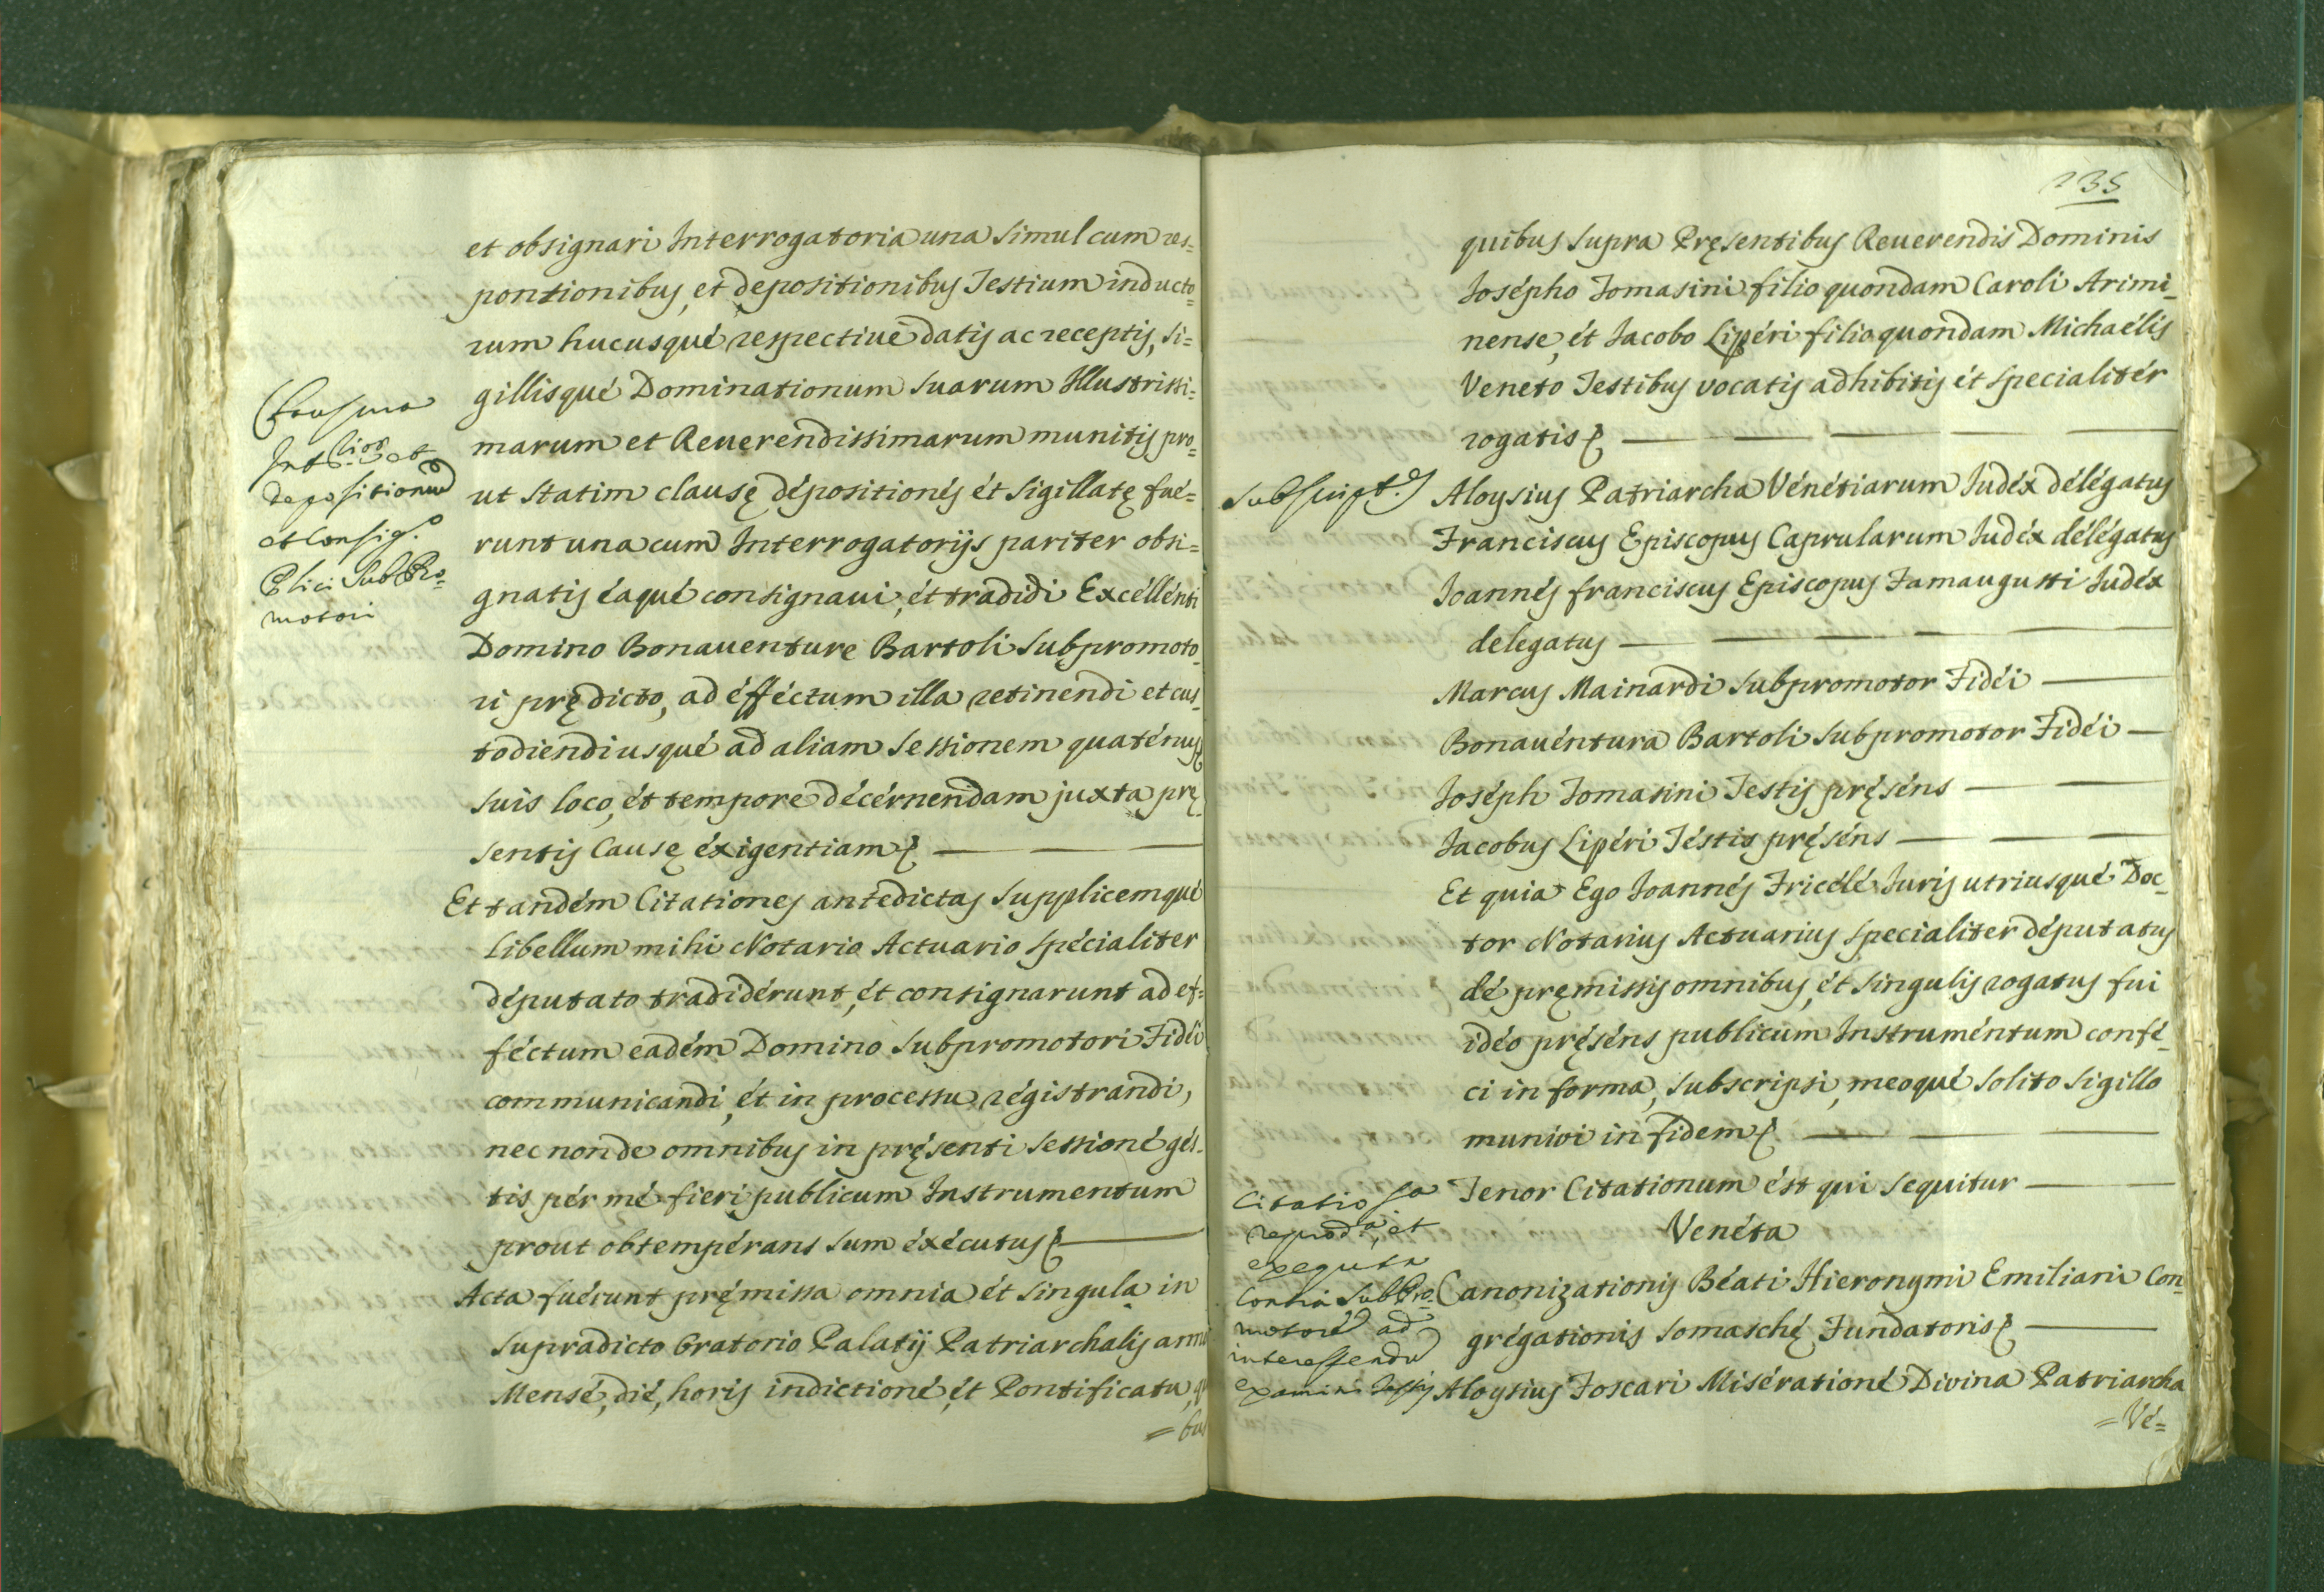 et obsignari Interrogatoria una simul cum res=
pontionibus, et depositionibus Testium inducto=
rum hucusqué respectiué datis ac receptis, si=
gillisqué Dominationum suarum Illustrissi=
marum et Reuerendissimarum munitis pro=
ut statim clausę dépositionés ét sigillatę fué=
runt una cum Interrogatorijs pariter obsi=
gnatis éaqué consignaui, ét tradidi Excéllénti
Domino Bonauenturę Bartoli Subpromoto=
ri prędicto, ad éfféctum illa retinendi et cus=
todiendi usqué ad aliam sessionem quaténus
suis loco, ét tempore décérnendam juxta prę=
sentis Causę éxigentiam
Et tandém Citationes antedictas Supplicemqué
Libellum mihi Notario Actuario spécialiter
députato tradidérunt, ét consignarunt ad ef=
féctum eadém Domino Subpromotori Fidéi
communicandi, ét in processu régistrandi,
nec non de omnibus in pręsenti sessioné gés=
tis pér mé fieri publicum Instrumentum
prout obtempérans sum éxécutus
Acta fuérunt pręmissa omnia ét singula in
supradicto Oratorio Palatij Patriarchalis anno
Mensé, dié, horis indictioné, ét Pontificatu,
= bus
Int.
et
depositionum
et Consig.o
Plici SubPro=
motori
235
quibus supra Pręsentibus Reuerendis Dominis
Joсépho Tomasini filio quondam Caroli Arimi=
nense, ét Jacobo Lipéri filio quondam Michaélis
Veneto Testibus vocatis adhibitis ét specialitér
rogatis
Subscript.es
Aloysius Patriarcha Vénétiarum Judéx délégatus
Franciscus Episcopus Caprularum Judéx délégatus
Joannés franciscus Episcopus Famaugusti Judéx
delegatus
Marcus Mainardi Subpromotor Fidéi
Bonauéntura Bartoli Subpromotor Fidéi
Joséph Tomasini Testis pręséns
Jacobus Lipéri Téstis pręséns
Et quia Ego Joannés Fricélé Juris utriusqué Doc=
tor Notarius Actuarius specialiter députatus
dé pręmissis omnibus, ét singulis rogatus fui
idéo pręséns publicum Instruméntum confé=
ci in forma, subscripsi, meoqué solito sigillo
munivi in fidem
Tenor Citationum ést qui sequitur
Venéta
Canonizationis Béati Hieronymi Emiliani Con=
grégationis Somaschę Fundatoris
Aloysius Foscari Misérationé Divina Patriarcha
= Vé=
Citatio
reprod.a, et
exequta
Contra SubPro=
motore ad
interessendu
examini Testis